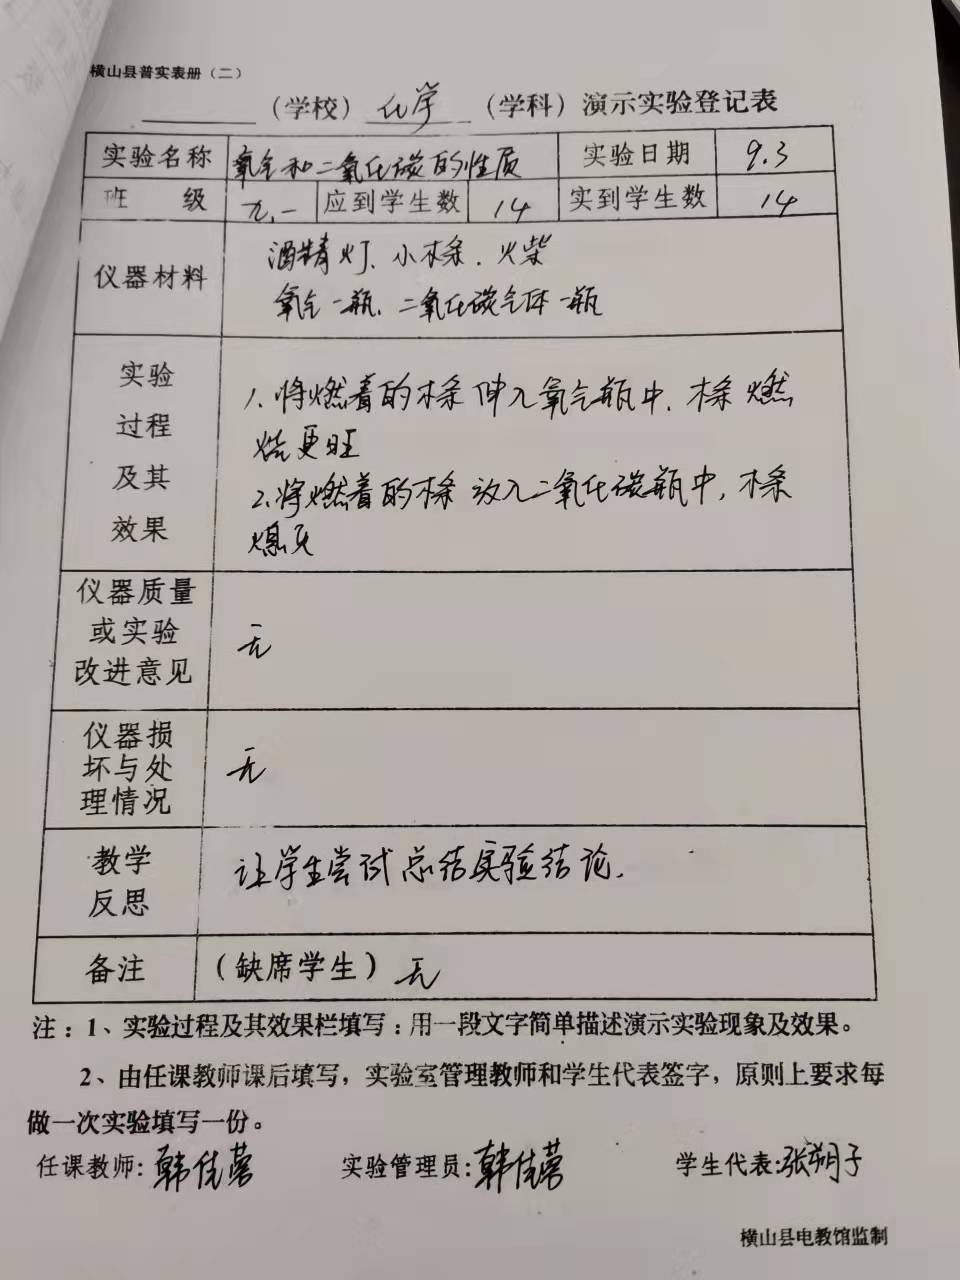 横山县普实表册（二）
（学校）化学（学科）演示实验登记表
实验名称 氧气和二氧化碳的性质 实验日期 9.3
班 级 九.一 应到学生数 14 实到学生数 14
仪器材料 酒精灯、小木条、火柴
氧气一瓶、二氧化碳气体一瓶
实验
过程
及其
效果
1、将燃着的木条伸入氧气瓶中，木条燃
烧更旺
2、将燃着的木条放入二氧化碳瓶中，木条
熄灭
仪器质量
或实验
改进意见
无
仪器损
坏与处
理情况
无
教学
反思
让学生尝试总结实验结论.
备注 （缺席学生）无
注：1、实验过程及其效果栏填写：用一段文字简单描述演示实验现象及效果。
2、由任课教师课后填写，实验室管理教师和学生代表签字，原则上要求每
做一次实验填写一份。
任课教师：韩佳蓉 实验管理员：韩佳蓉 学生代表：张朔子
横山县电教馆监制